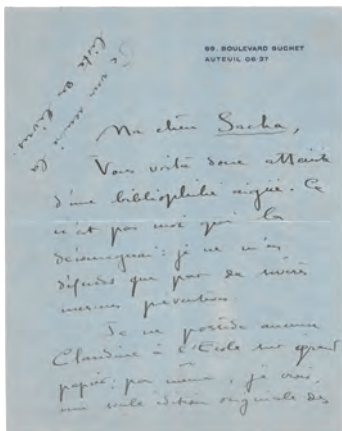 69. BOULEVARD SUCHET
AUTEUIL 06-37
Je vous
liste des livres.
Mon cher Sacha,
Vous voilà donc atteint
d'une bibliophilie aiguë. Ce
n'est pas moi qui la
je ne m'en
défends que par de
mesures préventives.
Je ne possède aucune
Claudine à l'Ecole sur grand
papier; pas même, je crois,
une seule édition originale des